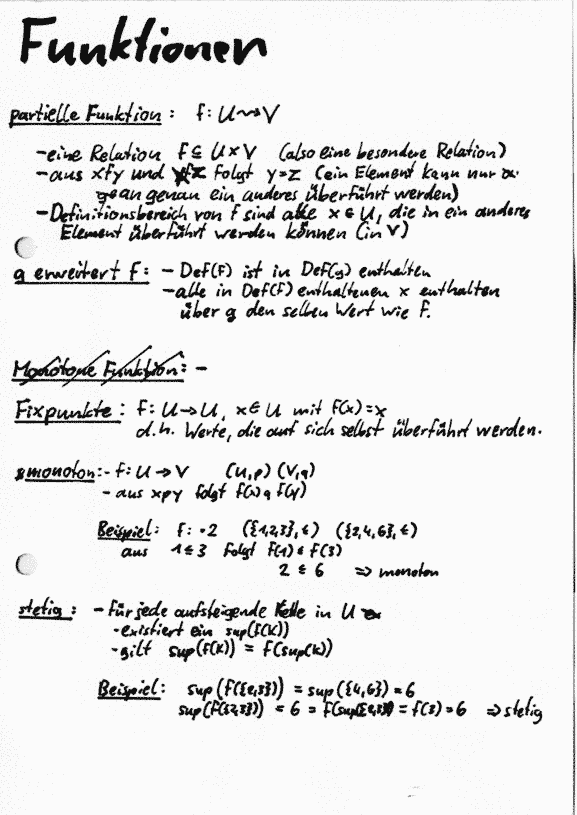 Funktionen
partielle Funktion: f: U ⇝ V
- eine Relation f ⊆ U × V (also eine besondere Relation)
- aus xfy und xfz folgt y = z (ein Element kann nur
genau ein anderes überführt werden)
- Definitionsbereich von f sind alle x ∈ U, die in ein anderes
Element überführt werden können (in V)
g erweitert f: - Def(f) ist in Def(g) enthalten
- alle in Def(f) enthaltenen x enthalten
über g den selben Wert wie f.
Monotone Funktion: -
Fixpunkte: f: U → U, x ∈ U mit f(x) = x
d.h. Werte, die auf sich selbst überführt werden.
monoton: - f: U → V (U, p) (V, q)
- aus xpy folgt f(x) q f(y)
Beispiel: f: ·2 ({1,2,3}, ≤) ({2,4,6}, ≤)
aus 1 ≤ 3 folgt f(1) ≤ f(3)
2 ≤ 6 ⇒ monoton
stetig: - für jede aufsteigende Kette in U
- existiert ein sup(f(K))
- gilt sup(f(K)) = f(sup(K))
Beispiel: sup(f({2,3})) = sup({4,6}) = 6
sup(f({2,3})) = 6 = f(sup({2,3})) = f(3) = 6 ⇒ stetig